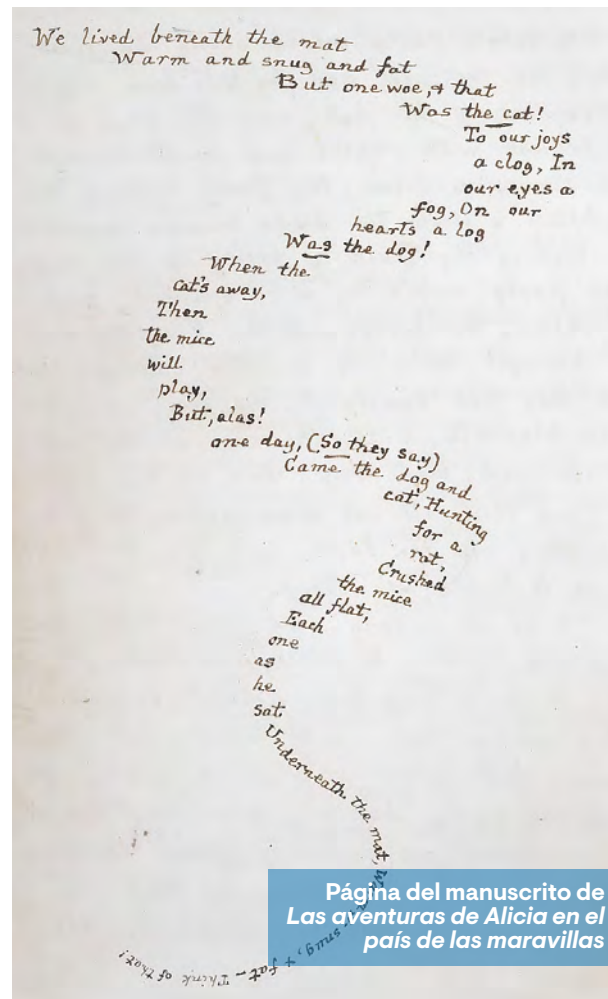 We lived beneath the mat
Warm and snug and fat
But one woe, & that
Was the cat!
To our joys
a clog, In
our eyes a
fog, On our
hearts a log
Was the dog!
When the
cat's away,
Then
the mice
will
play,
But, alas!
one day, (So they say)
Came the dog and
cat, Hunting
for a
rat,
Crushed
the mice
all flat,
Each
one
as
he
sat
Underneath the mat, Warm, & snug, & fat – Think of that!
Página del manuscrito de
Las aventuras de Alicia en el
país de las maravillas